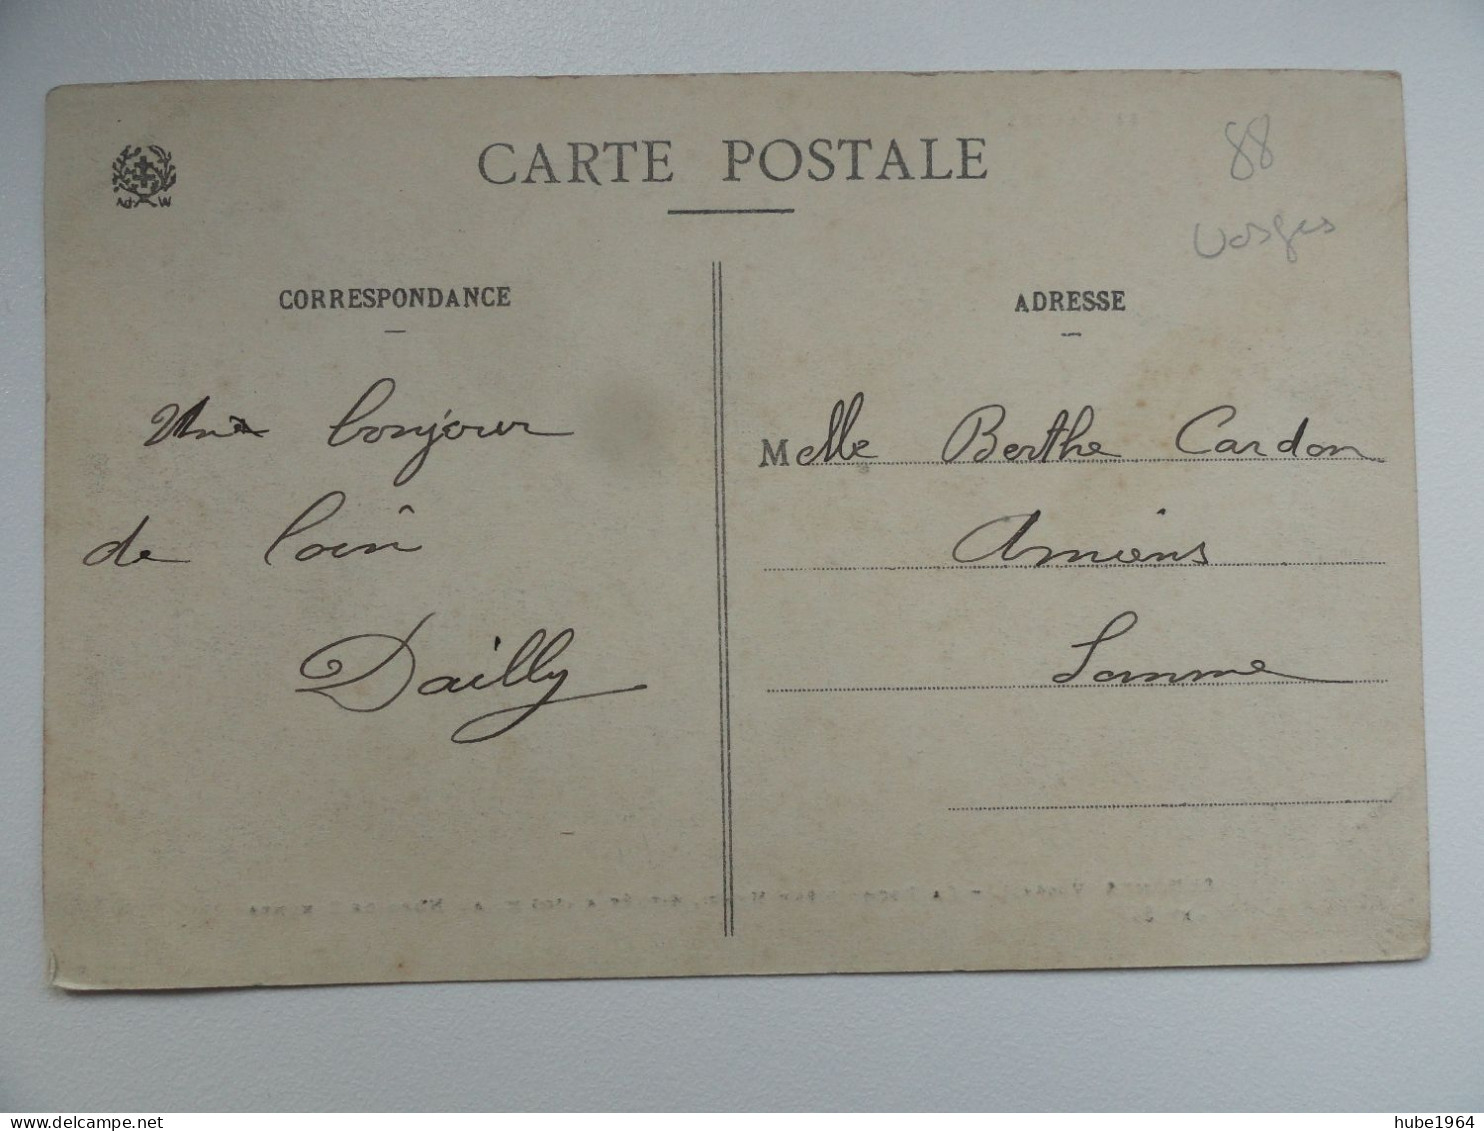 CARTE POSTALE
88
Vosges
Ad W
CORRESPONDANCE
Un bonjour
de loin
Dailly
ADRESSE
Melle Berthe Cardon
Amiens
Somme
hube1964